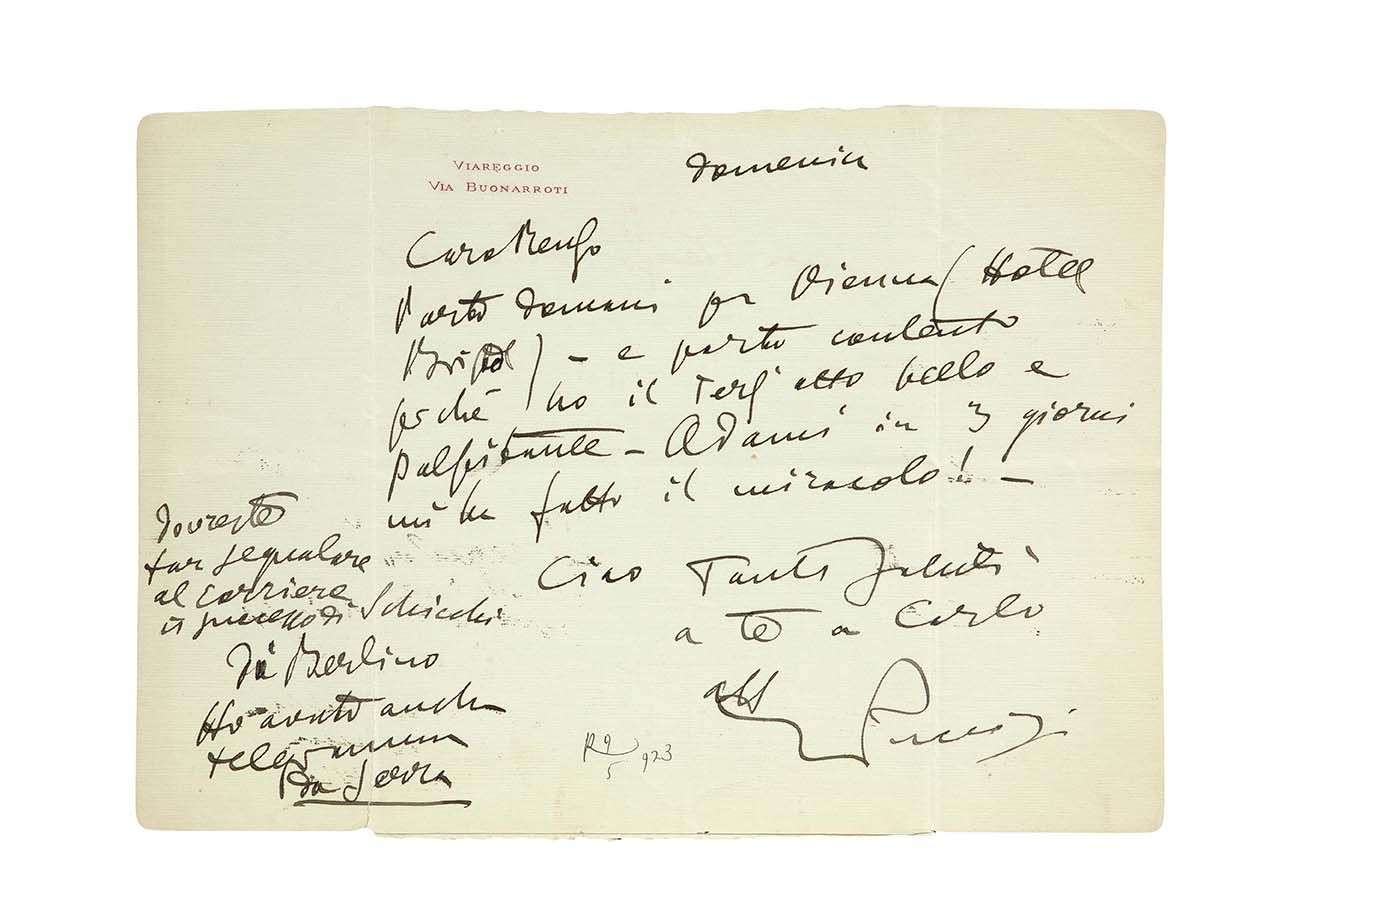 VIAREGGIO
VIA BUONARROTI
Domenica
Caro Renzo
Parto domani per Vienna (Hotel
Bristol) – e parto contento
perché ho il terz'atto bello e
palpitante – Adami in 3 giorni
mi ha fatto il miracolo! –
Ciao Tanti saluti
a te a Carlo
aff
Puccini
dovreste
far segnalare
al Corriere
il successo di Schicchi
da Berlino
Ho avuto anche
telegramma
da
R 9/5 923